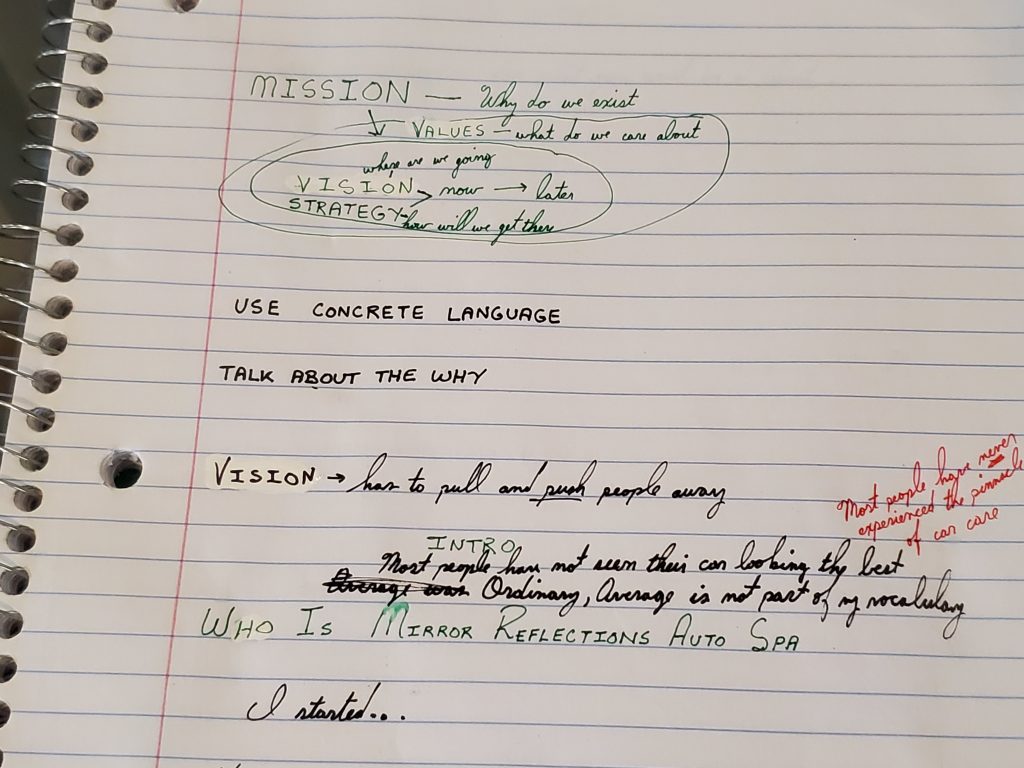 MISSION — Why do we exist
↓ VALUES — what do we care about
where are we going
VISION > now → later
STRATEGY - how will we get there
USE CONCRETE LANGUAGE
TALK ABOUT THE WHY
VISION → has to pull and push people away
Most people have never
experienced the pinnacle
of car care
INTRO
Most people have not seen their car looking the best
Average Ordinary, Average is not part of my vocabulary
WHO IS MIRROR REFLECTIONS AUTO SPA
I started...